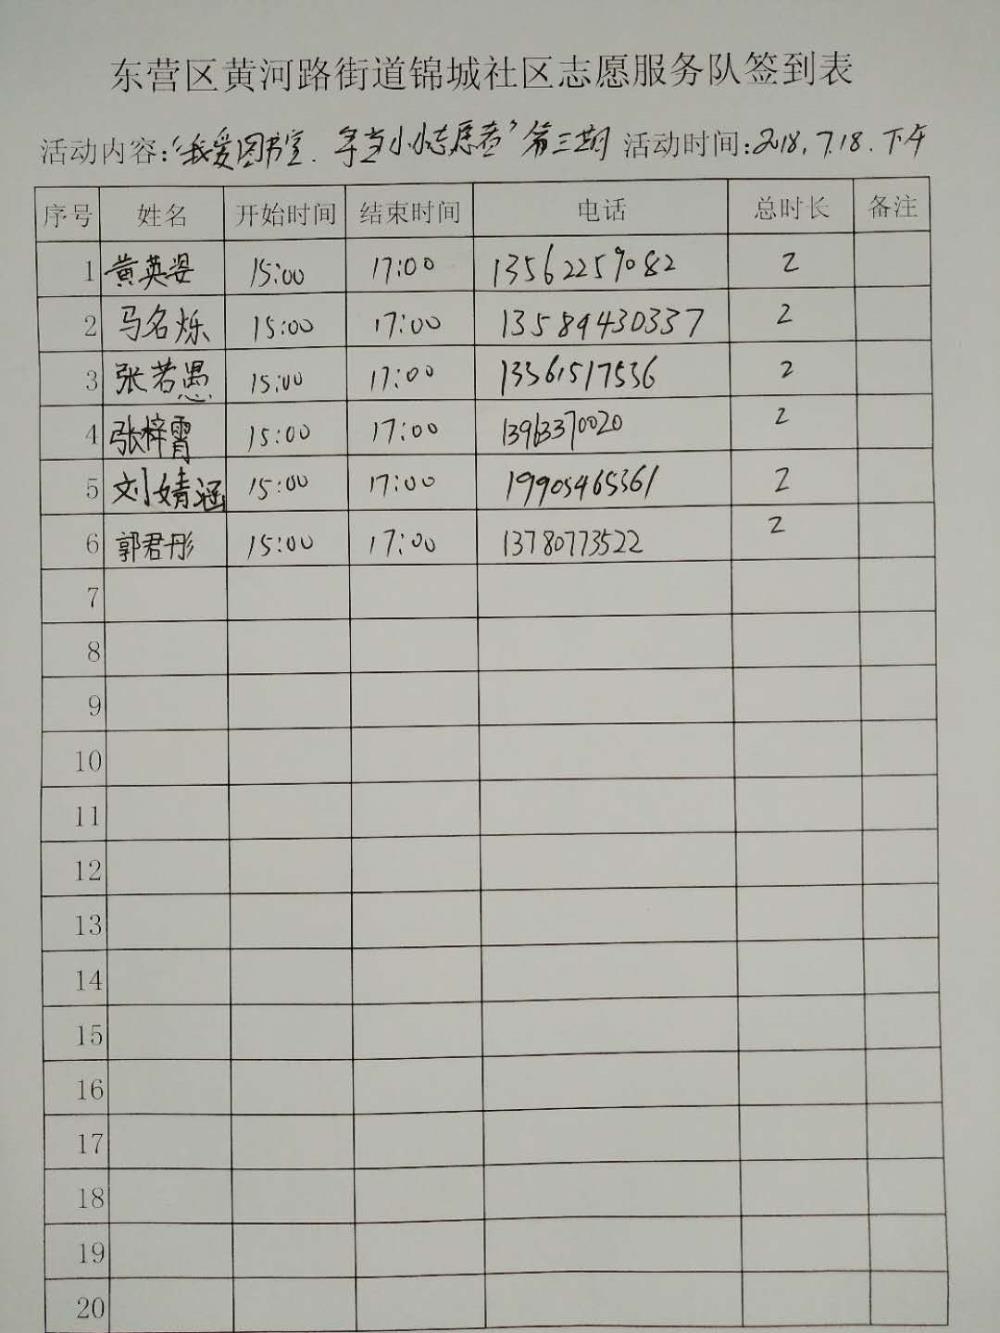 东营区黄河路街道锦城社区志愿服务队签到表
活动内容:“我爱图书室.争当小小志愿者”第三期 活动时间:2018.7.18.下午
序号 姓名 开始时间 结束时间 电话 总时长 备注
1 黄英姿 15:00 17:00 13562259082 2
2 马名烁 15:00 17:00 13589430337 2
3 张若愚 15:00 17:00 13361517536 2
4 张梓霄 15:00 17:00 13963370020 2
5 刘婧涵 15:00 17:00 19905465361 2
6 郭君彤 15:00 17:00 13780773522 2
7
8
9
10
11
12
13
14
15
16
17
18
19
20